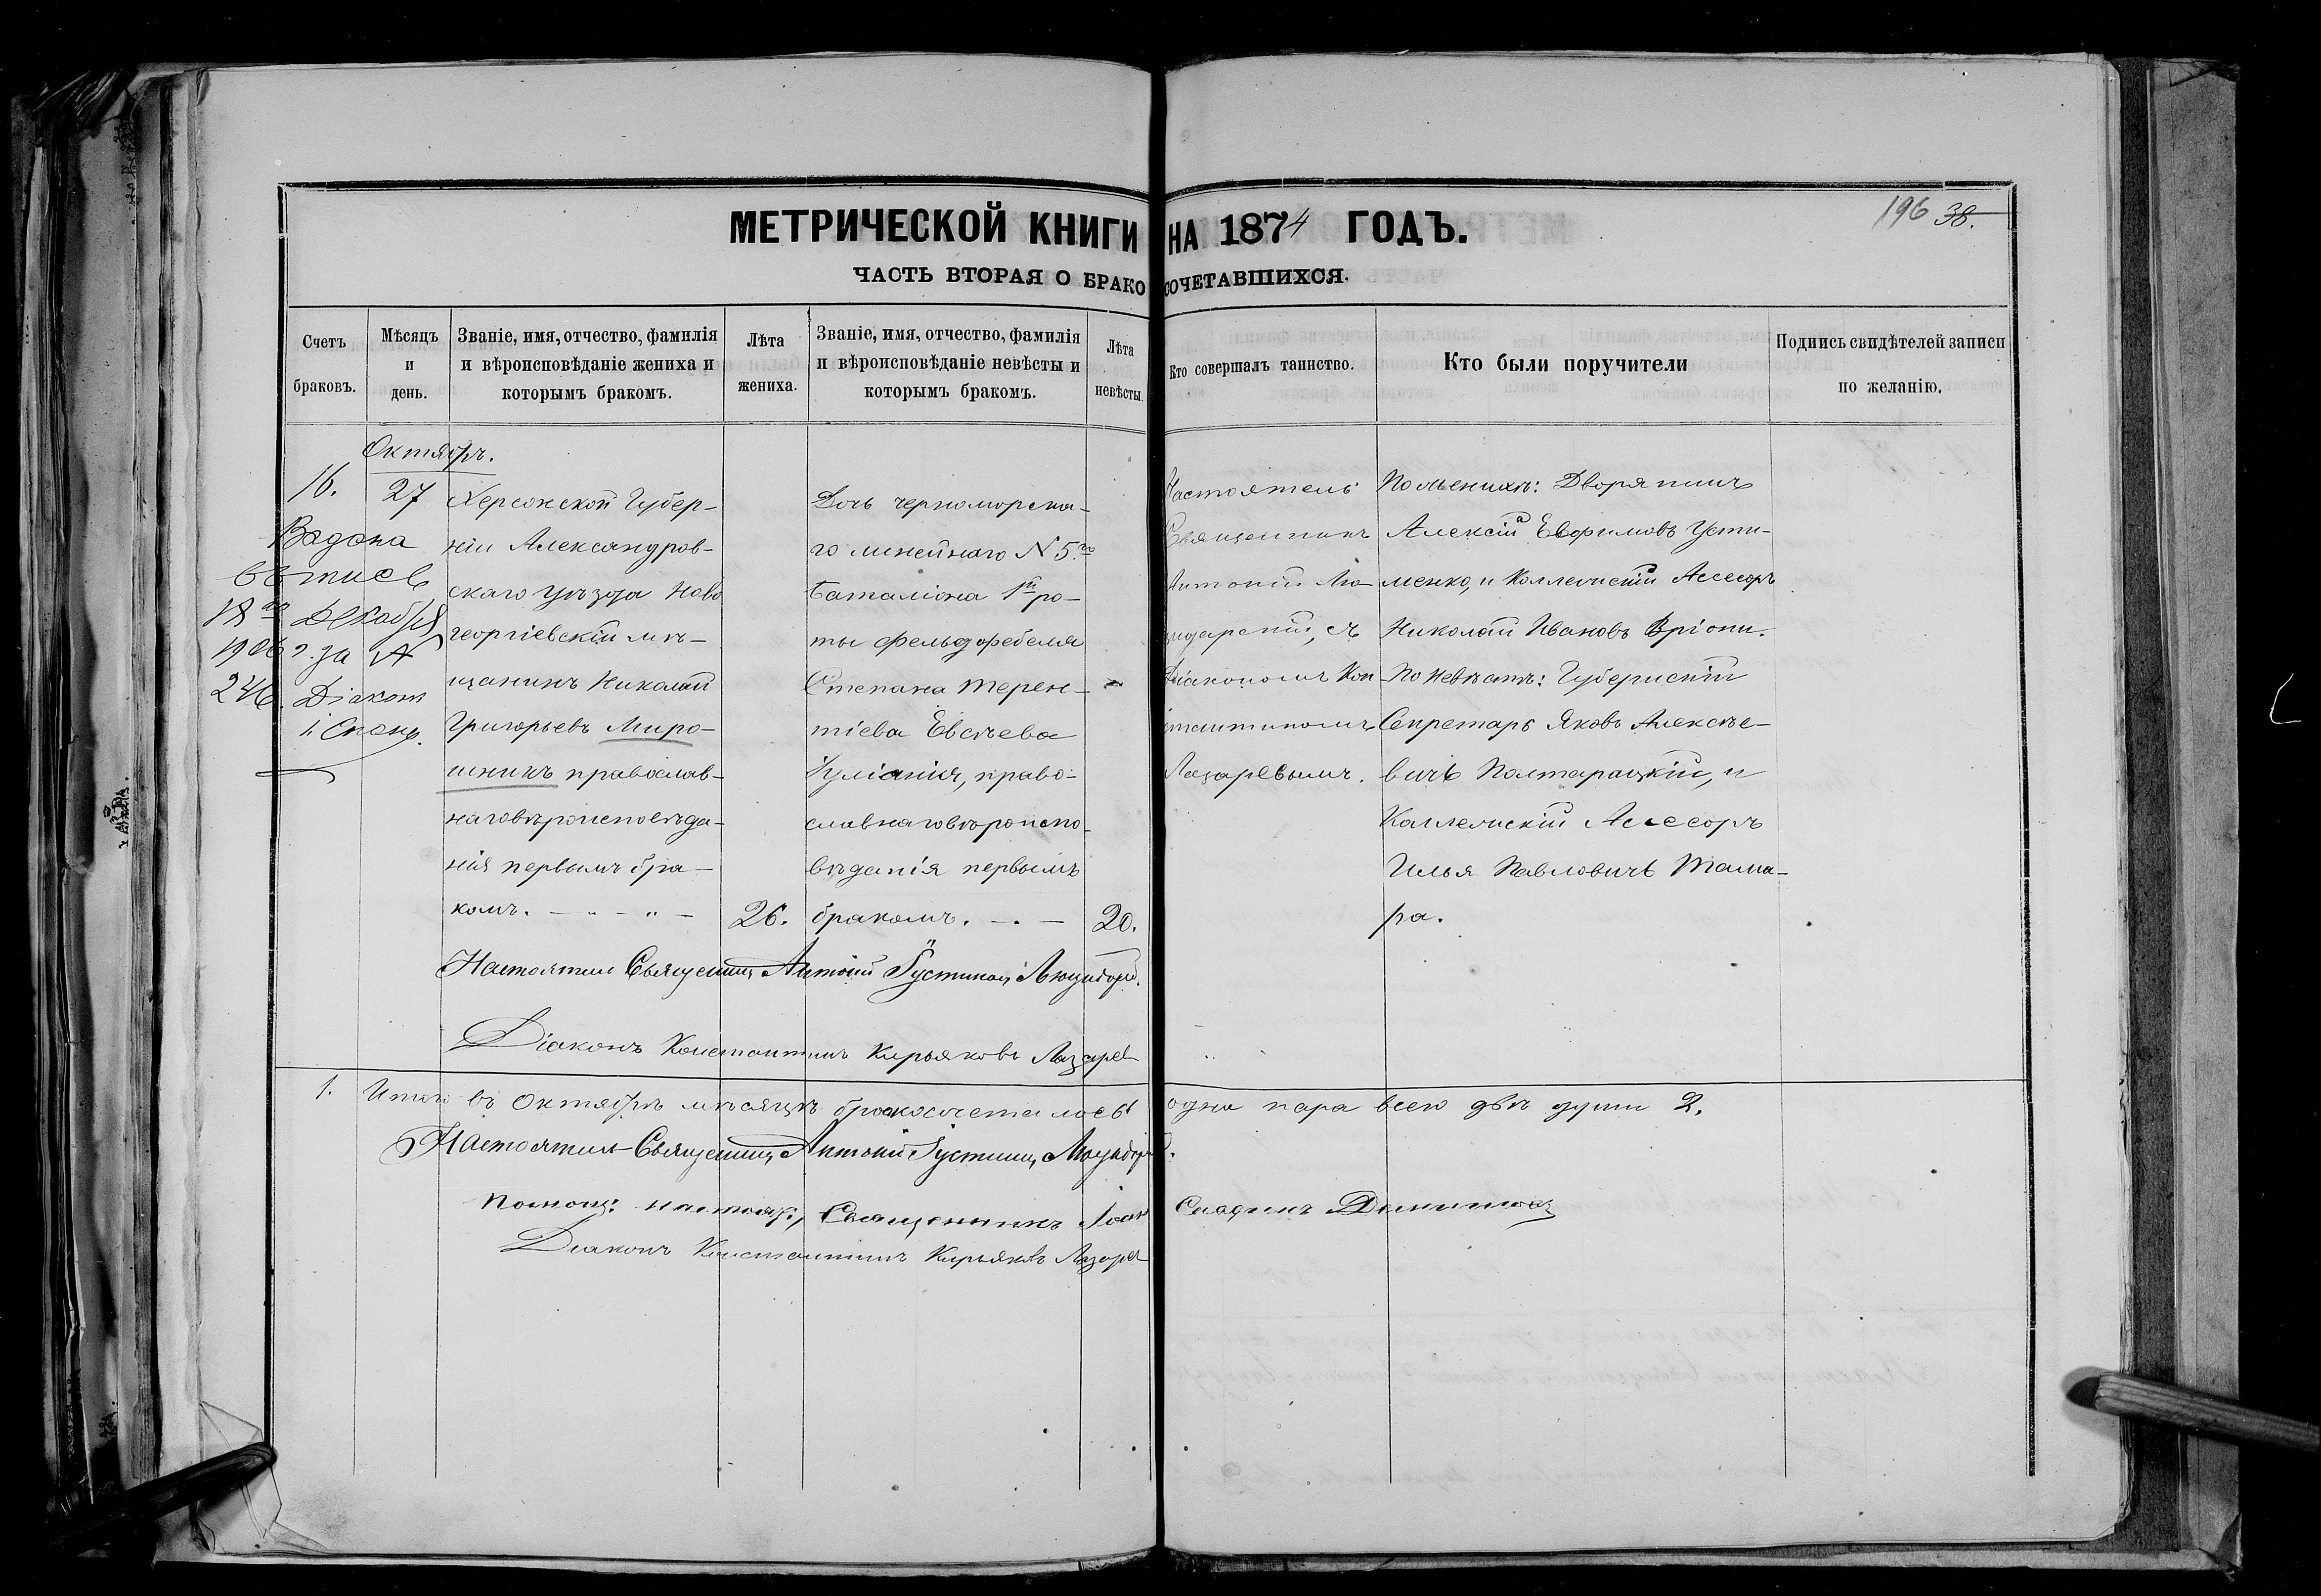 МЕТРИЧЕСКОЙ КНИГИ НА 1874 ГОДЪ.
196 38.
ЧАСТЬ ВТОРАЯ О БРАКОСОЧЕТАВШИХСЯ.
Счетъ браковъ.
Мѣсяцъ и день.
Званіе, имя, отчество, фамилія
и вѣроисповѣданіе жениха и
которымъ бракомъ.
Лѣта жениха.
Званіе, имя, отчество, фамилія
и вѣроисповѣданіе невѣсты и
которымъ бракомъ.
Лѣта невѣсты.
Кто совершалъ таинство.
Кто были поручители
Подпись свидѣтелей записи
по желанію.
Октябрь.
16.
27
Выдана
выпись
18го Декабря
1906 г. за №
246. Діаконъ
Херсонской Губер-
ніи Александров-
скаго уѣзда Ново
георгіевскій мѣ-
щанинъ Николай
Григорьевъ Миро-
шникъ православ-
наго вѣроисповѣда-
нія первымъ бра-
комъ.
26.
Дочь черноморска-
го линейнаго N 5го
баталіона 1й ро-
ты фельдфебеля
Степана Терен-
тіева Евсѣева
Іуліанія, право-
славнаго вѣроиспо-
вѣданія первымъ
бракомъ.
20.
Настоятель
Священникъ
Антоній Лю-
цидарскій, съ
Діакономъ Кон-
стантиномъ
Лазаревымъ.
По женихѣ: Дворянинъ
Алексій Евфимовъ Усти-
менко, и Коллежскій Асессоръ
Николай Ивановъ Вріони.
По невѣстѣ: Губернскій
Секретарь Яковъ Алексѣе-
вичъ Полтарацкій, и
Коллежскій Асессоръ
Илья Павловичъ Тама-
ра.
Настоятель Священникъ Антоній Іустиновъ Люцидарскій.
Діаконъ Константинъ Кирьяковъ Лазаревъ
1. Итого въ Октябрѣ мѣсяцѣ бракосочеталось одна пара всего двѣ души 2.
Настоятель Священникъ Антоній Іустиновъ Люцидарскій.
Помощ: настоят:, Священникъ
Діаконъ Константинъ Кирьяковъ Лазаревъ